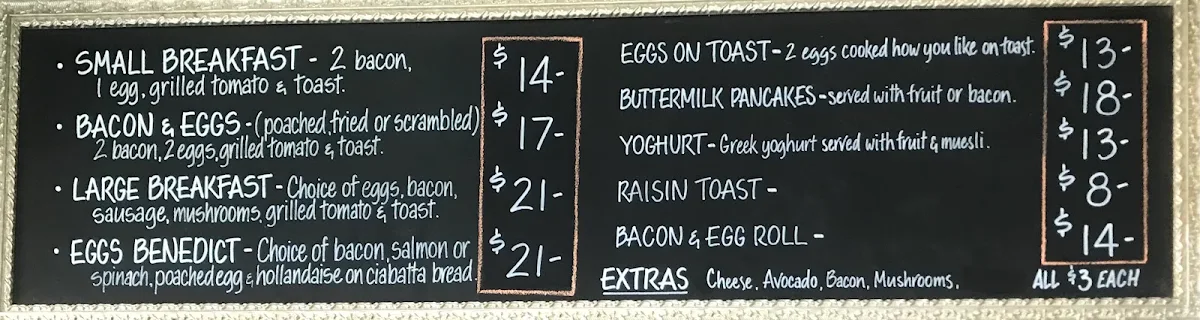 • SMALL BREAKFAST - 2 bacon, $14-
1 egg, grilled tomato & toast.
• BACON & EGGS - (poached, fried or scrambled) $17-
2 bacon, 2 eggs, grilled tomato & toast.
• LARGE BREAKFAST - Choice of eggs, bacon, $21-
sausage, mushrooms, grilled tomato & toast.
• EGGS BENEDICT - Choice of bacon, salmon or $21-
spinach, poached egg & hollandaise on ciabatta bread.
EGGS ON TOAST - 2 eggs cooked how you like on toast. $13-
BUTTERMILK PANCAKES - served with fruit or bacon. $18-
YOGHURT - Greek yoghurt served with fruit & muesli. $13-
RAISIN TOAST - $8-
BACON & EGG ROLL - $14-
EXTRAS Cheese, Avocado, Bacon, Mushrooms. ALL $3 EACH